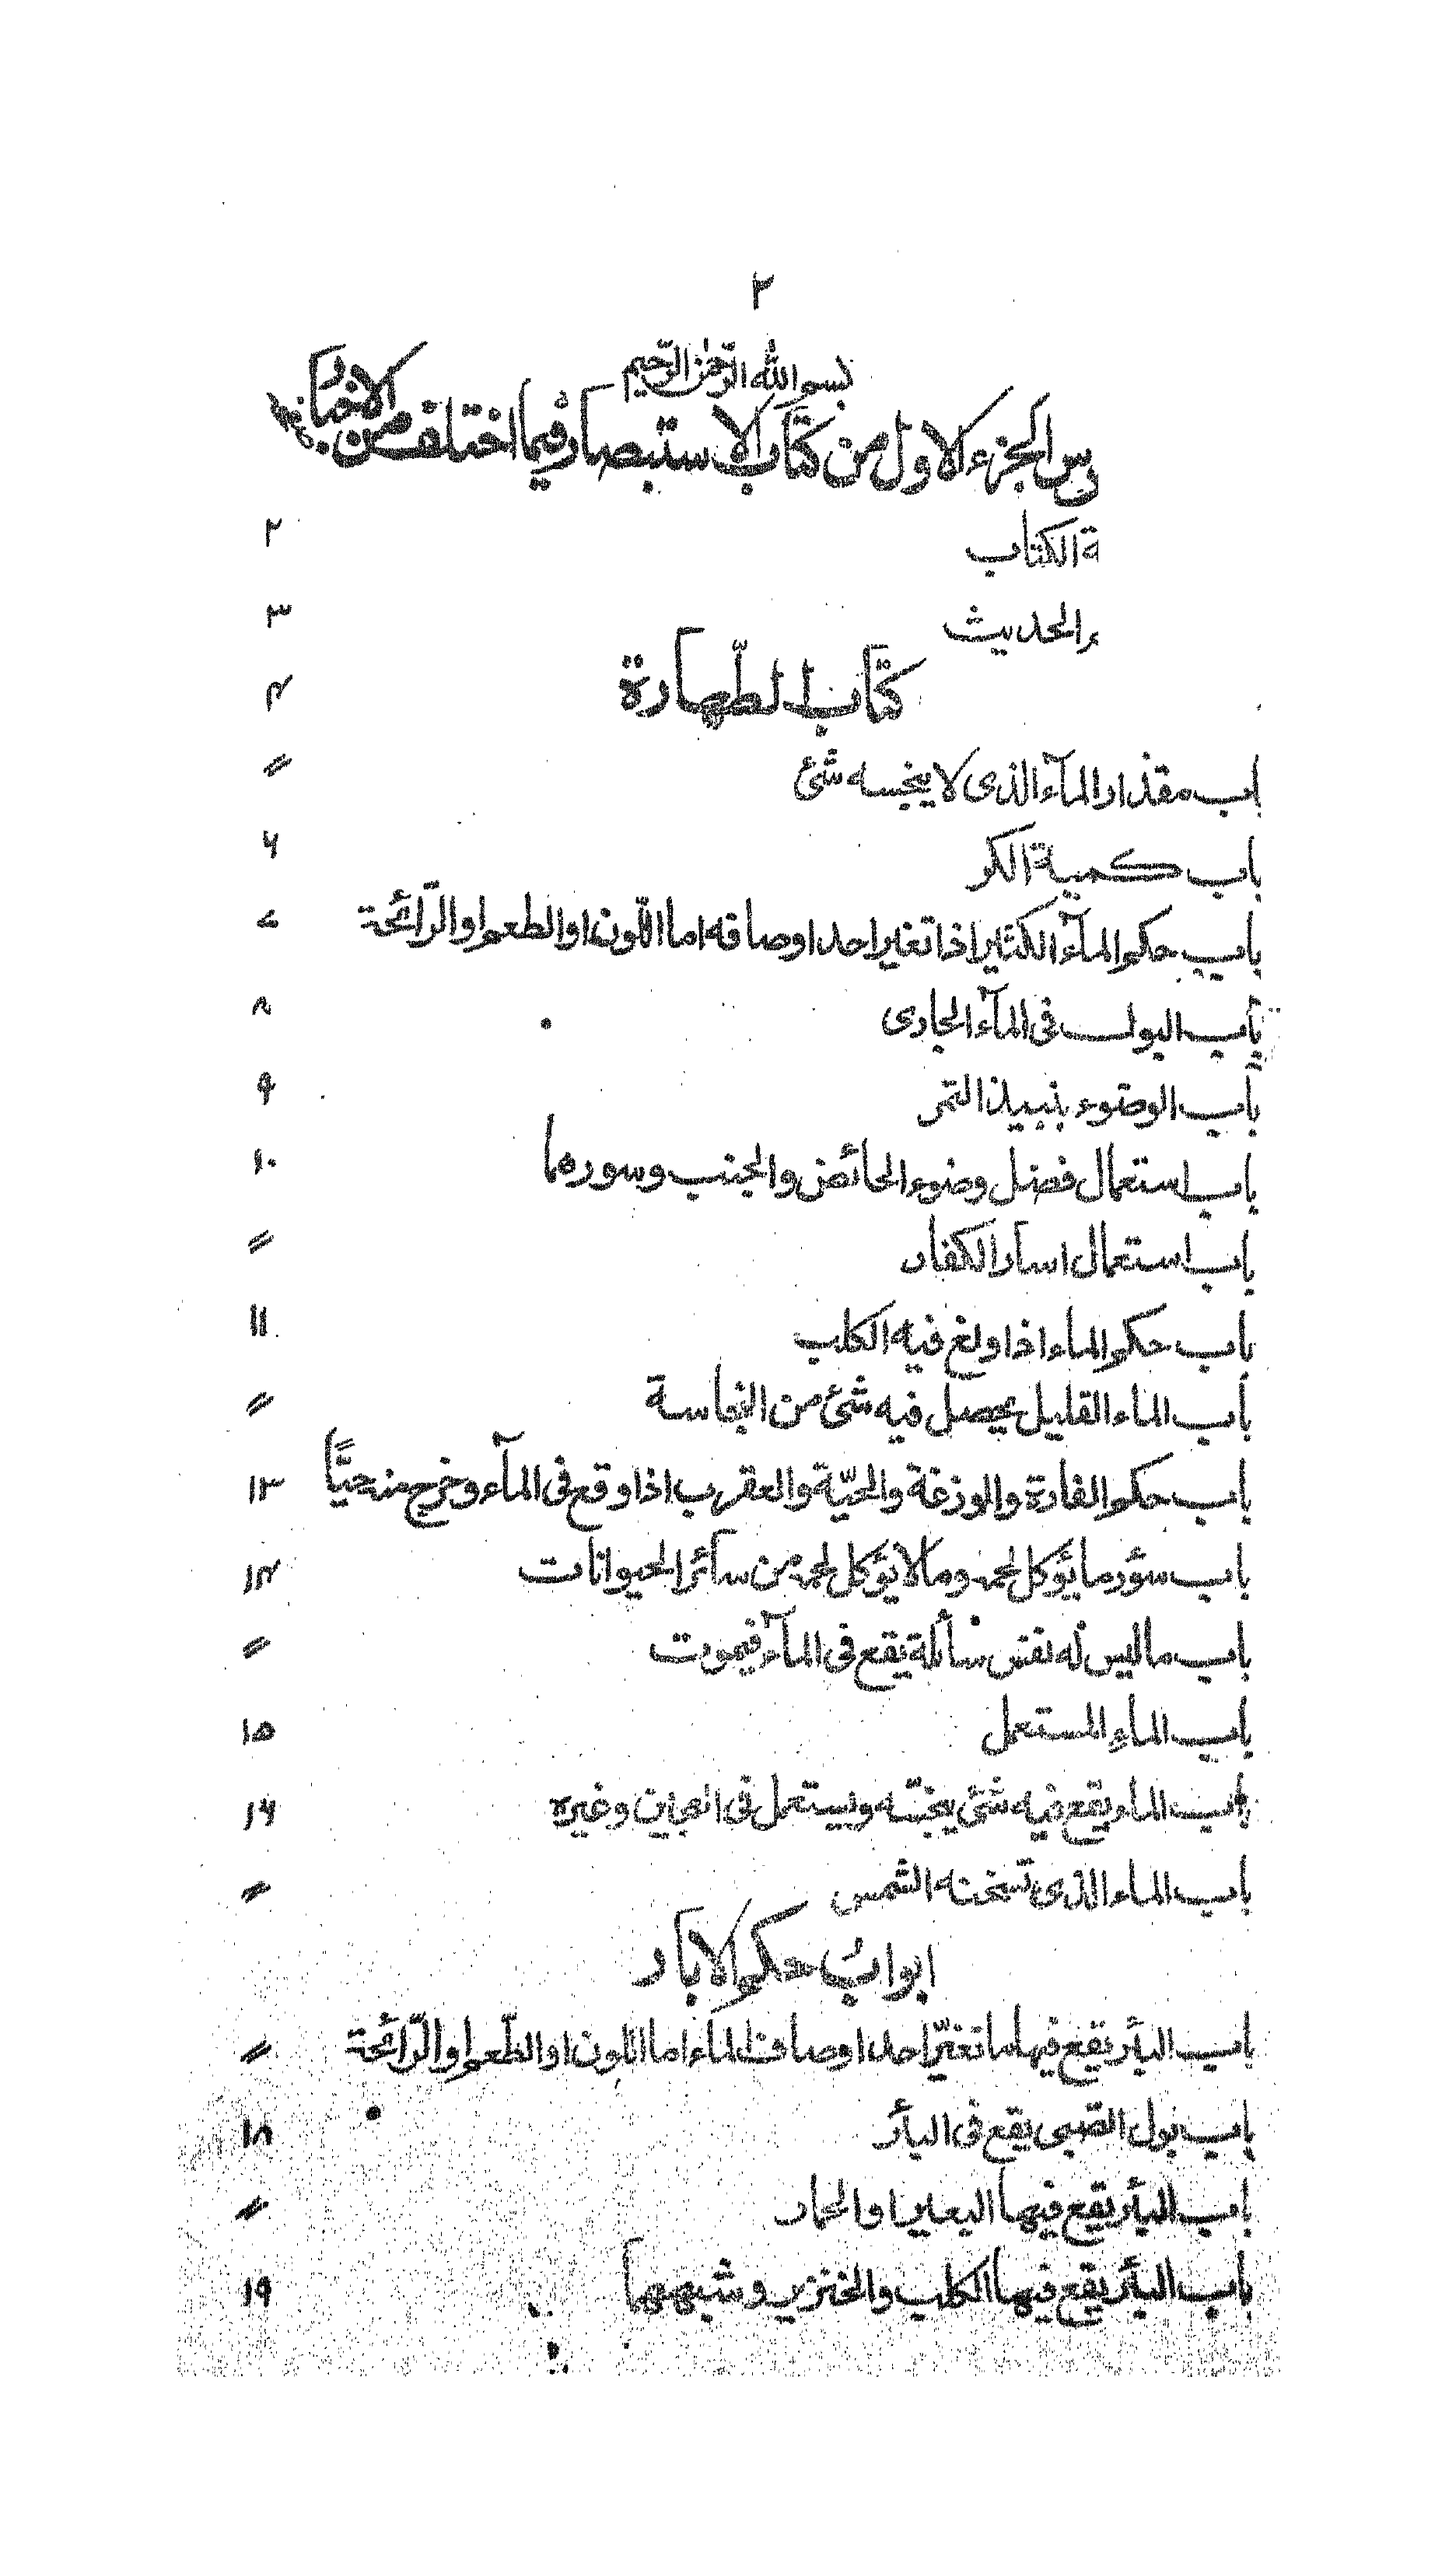 ٢
بسم الله الرحمن الرحيم
رس الجزء الاول من كتاب الاستبصار فيما اختلف من الاخبار
ة الكتاب ٢
ء الحديث ٣
كتاب الطهارة ۴
باب مقدار المآء الذى لا ينجسه شئ 〃
باب كمية الكر ۶
باب حكم المآء الكثير اذا تغير احد اوصافه اما اللون او الطعم او الرّائحة ٧
باب البول فى المآء الجارى ٨
باب الوضوء بنبيذ التمر ٩
باب استعمال فضل وضوء الحائض والجنب وسورهما ١٠
باب استعمال اسآر الكفار 〃
باب حكم الماء اذا ولغ فيه الكلب ١١
باب الماء القليل يحصل فيه شئ من النجاسة 〃
باب حكم الفارة والوزغة والحيّة والعقرب اذا وقع فى المآء وخرج منه حيًّا ١٣
باب سؤر ما يؤكل لحمه وما لا يؤكل لحمه من سآئر الحيوانات ١۴
باب ما ليس له نفس سائلة يقع فى المآء فيموت 〃
باب الماء المستعمل ١۵
باب الماء يقع فيه شئ ينجّسه ويستعمل فى العجين وغيره ١۶
باب الماء الذى تسخنه الشمس 〃
ابواب حكم الابار
باب البئر يقع فيها ما تغيّر احد اوصاف الماء اما اللون او الطّعم او الرّائحة 〃
باب بول الصبى يقع فى البئر ١٨
باب البئر يقع فيها البعير او الحمار 〃
باب البئر يقع فيها الكلب والخنزير وشبههما ١٩